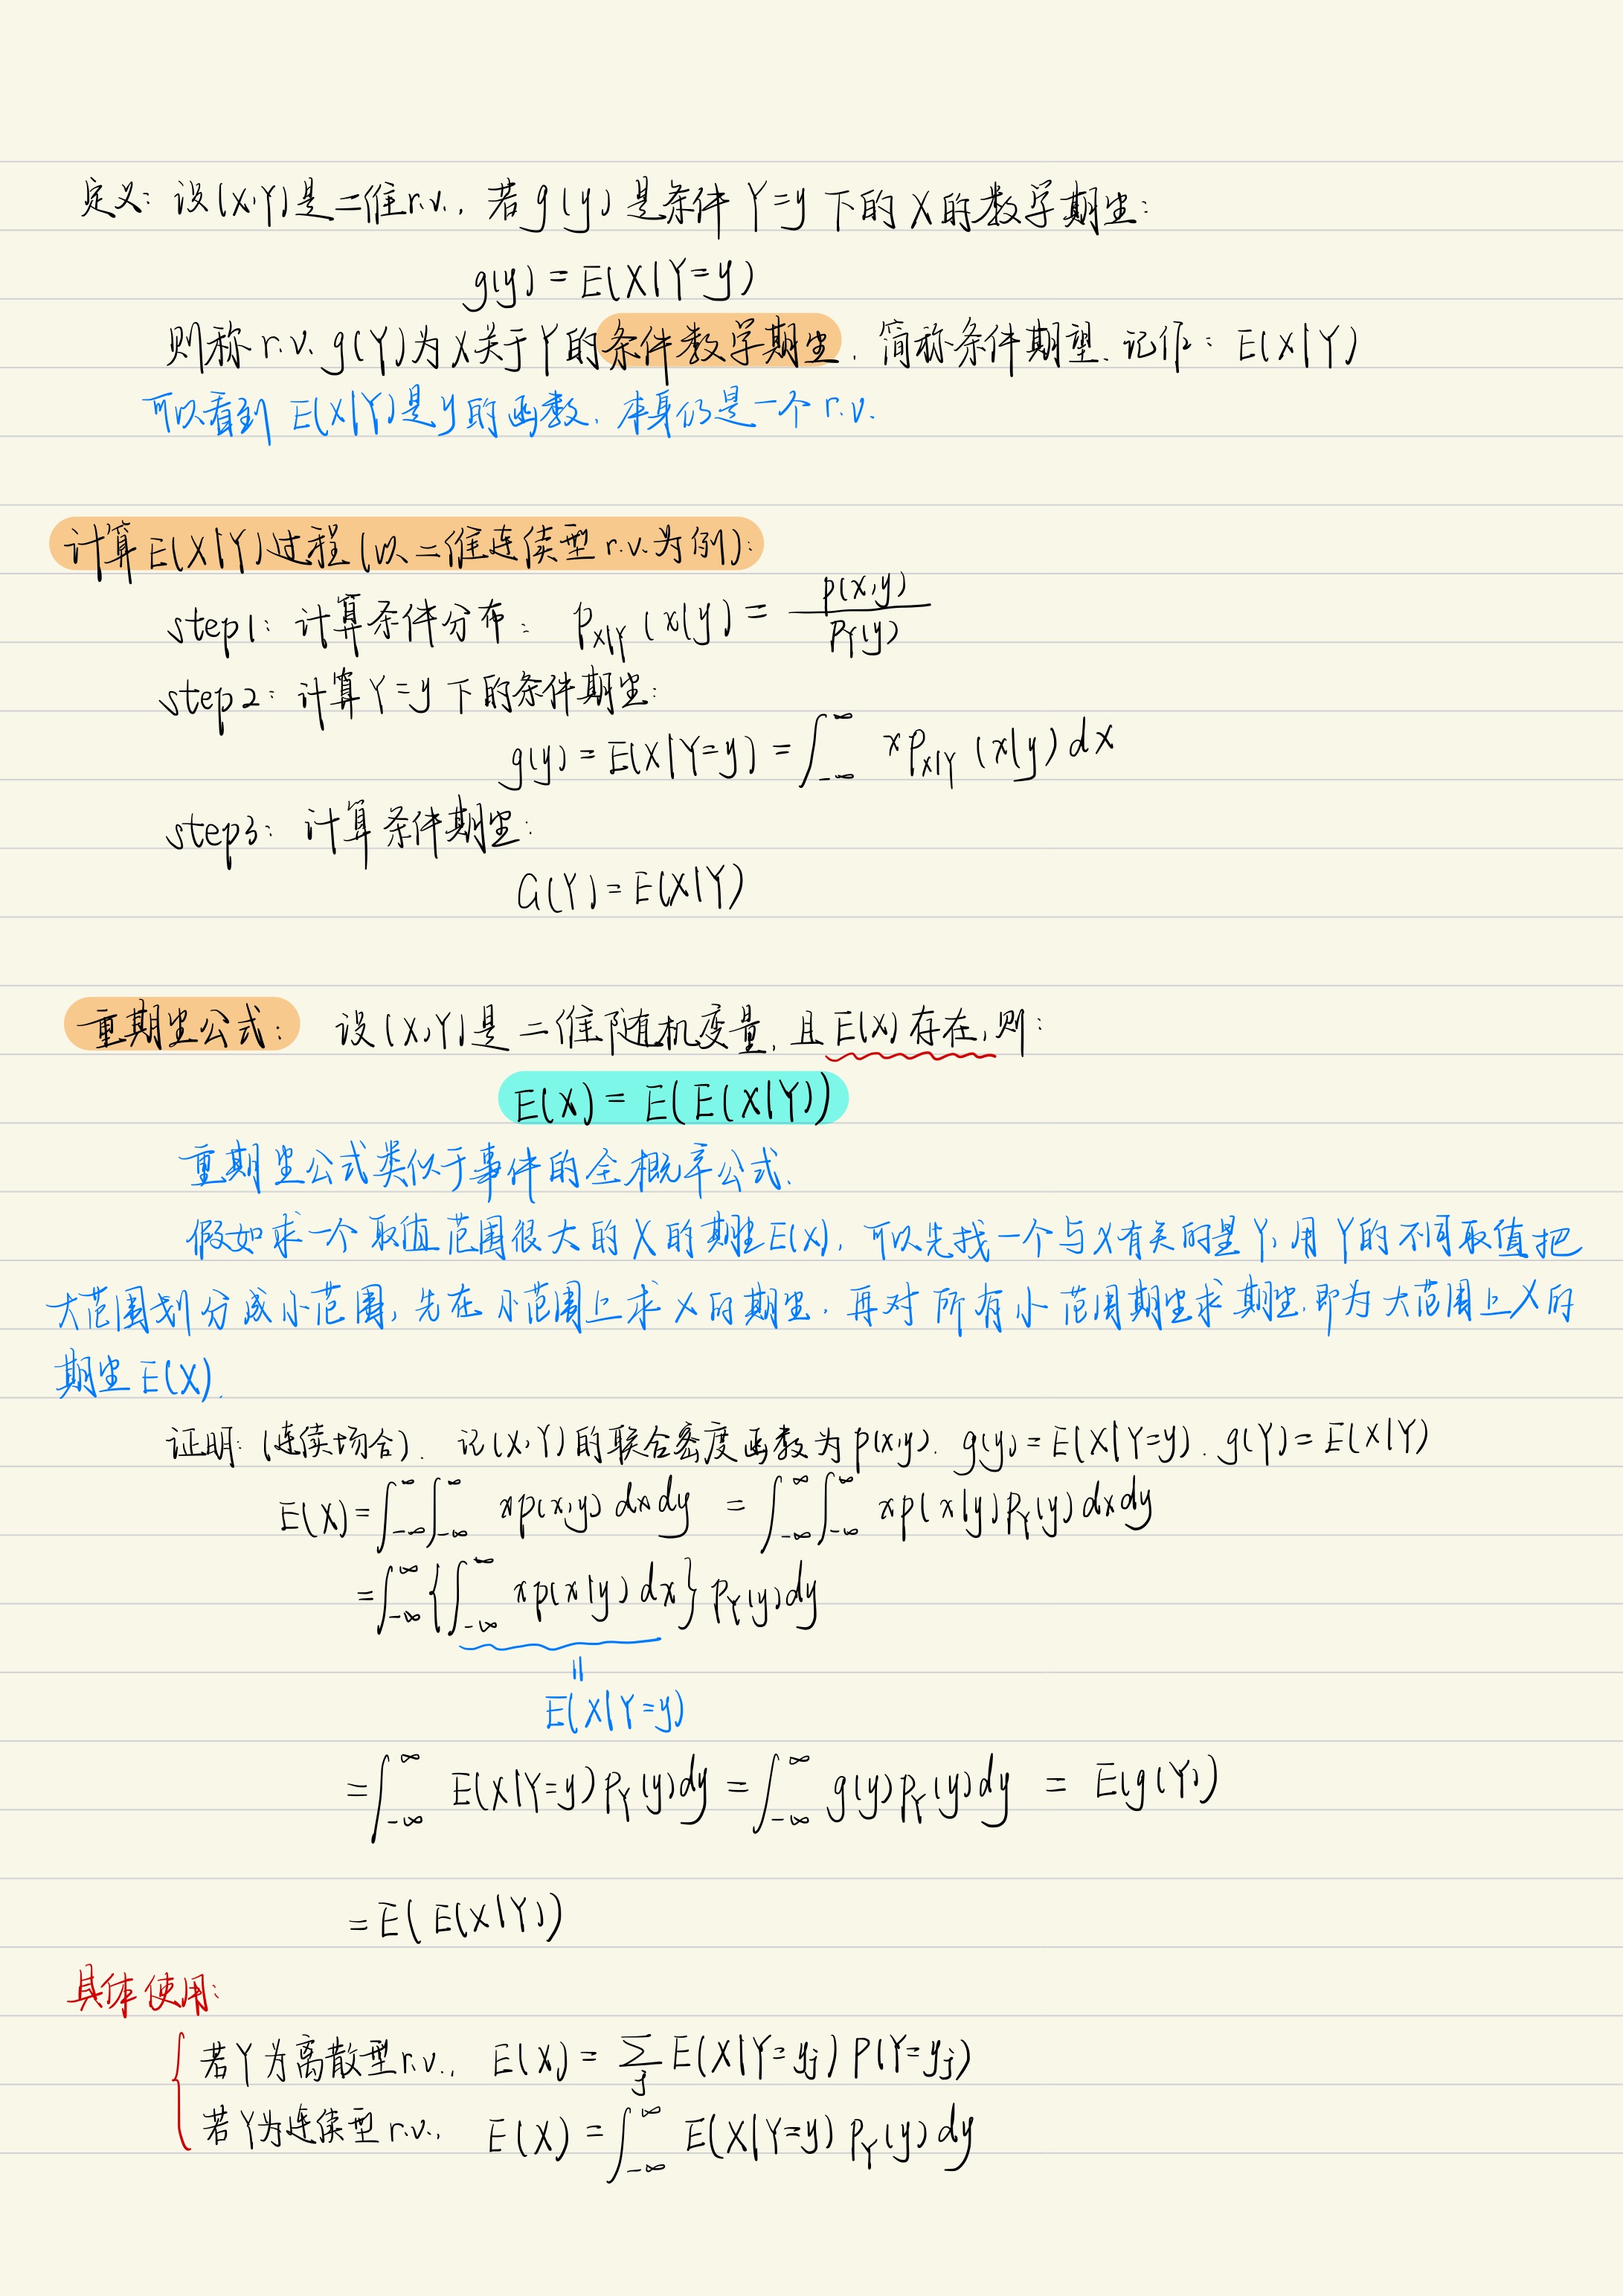 定义: 设(X,Y)是二维r.v., 若g(y)是条件Y=y下的X的数学期望:
g(y) = E(X|Y=y)
则称r.v. g(Y)为X关于Y的条件数学期望, 简称条件期望. 记作: E(X|Y)
可以看到 E(X|Y)是y的函数, 本身仍是一个r.v.
计算E(X|Y)过程(以二维连续型r.v.为例):
step1: 计算条件分布: p_{X|Y}(x|y) = p(x,y)/p_Y(y)
step2: 计算Y=y下的条件期望:
g(y) = E(X|Y=y) = ∫_{-∞}^{∞} x p_{X|Y}(x|y) dx
step3: 计算条件期望:
G(Y) = E(X|Y)
重期望公式: 设(X,Y)是二维随机变量, 且E(X)存在, 则:
E(X) = E(E(X|Y))
重期望公式类似于事件的全概率公式.
假如求一个取值范围很大的X的期望E(X), 可以先找一个与X有关的量Y, 用Y的不同取值把
大范围划分成小范围, 先在小范围上求X的期望, 再对所有小范围期望求期望, 即为大范围上X的
期望E(X).
证明: (连续场合). 记(X,Y)的联合密度函数为p(x,y). g(y) = E(X|Y=y). g(Y) = E(X|Y)
E(X) = ∫_{-∞}^{∞}∫_{-∞}^{∞} xp(x,y) dxdy = ∫_{-∞}^{∞}∫_{-∞}^{∞} xp(x|y)p_Y(y) dxdy
= ∫_{-∞}^{∞} {∫_{-∞}^{∞} xp(x|y) dx} p_Y(y) dy
=
E(X|Y=y)
= ∫_{-∞}^{∞} E(X|Y=y) p_Y(y) dy = ∫_{-∞}^{∞} g(y) p_Y(y) dy = E(g(Y))
= E(E(X|Y))
具体使用:
若Y为离散型r.v., E(X) = ∑_j E(X|Y=y_j) P(Y=y_j)
若Y为连续型r.v., E(X) = ∫_{-∞}^{∞} E(X|Y=y) p_Y(y) dy